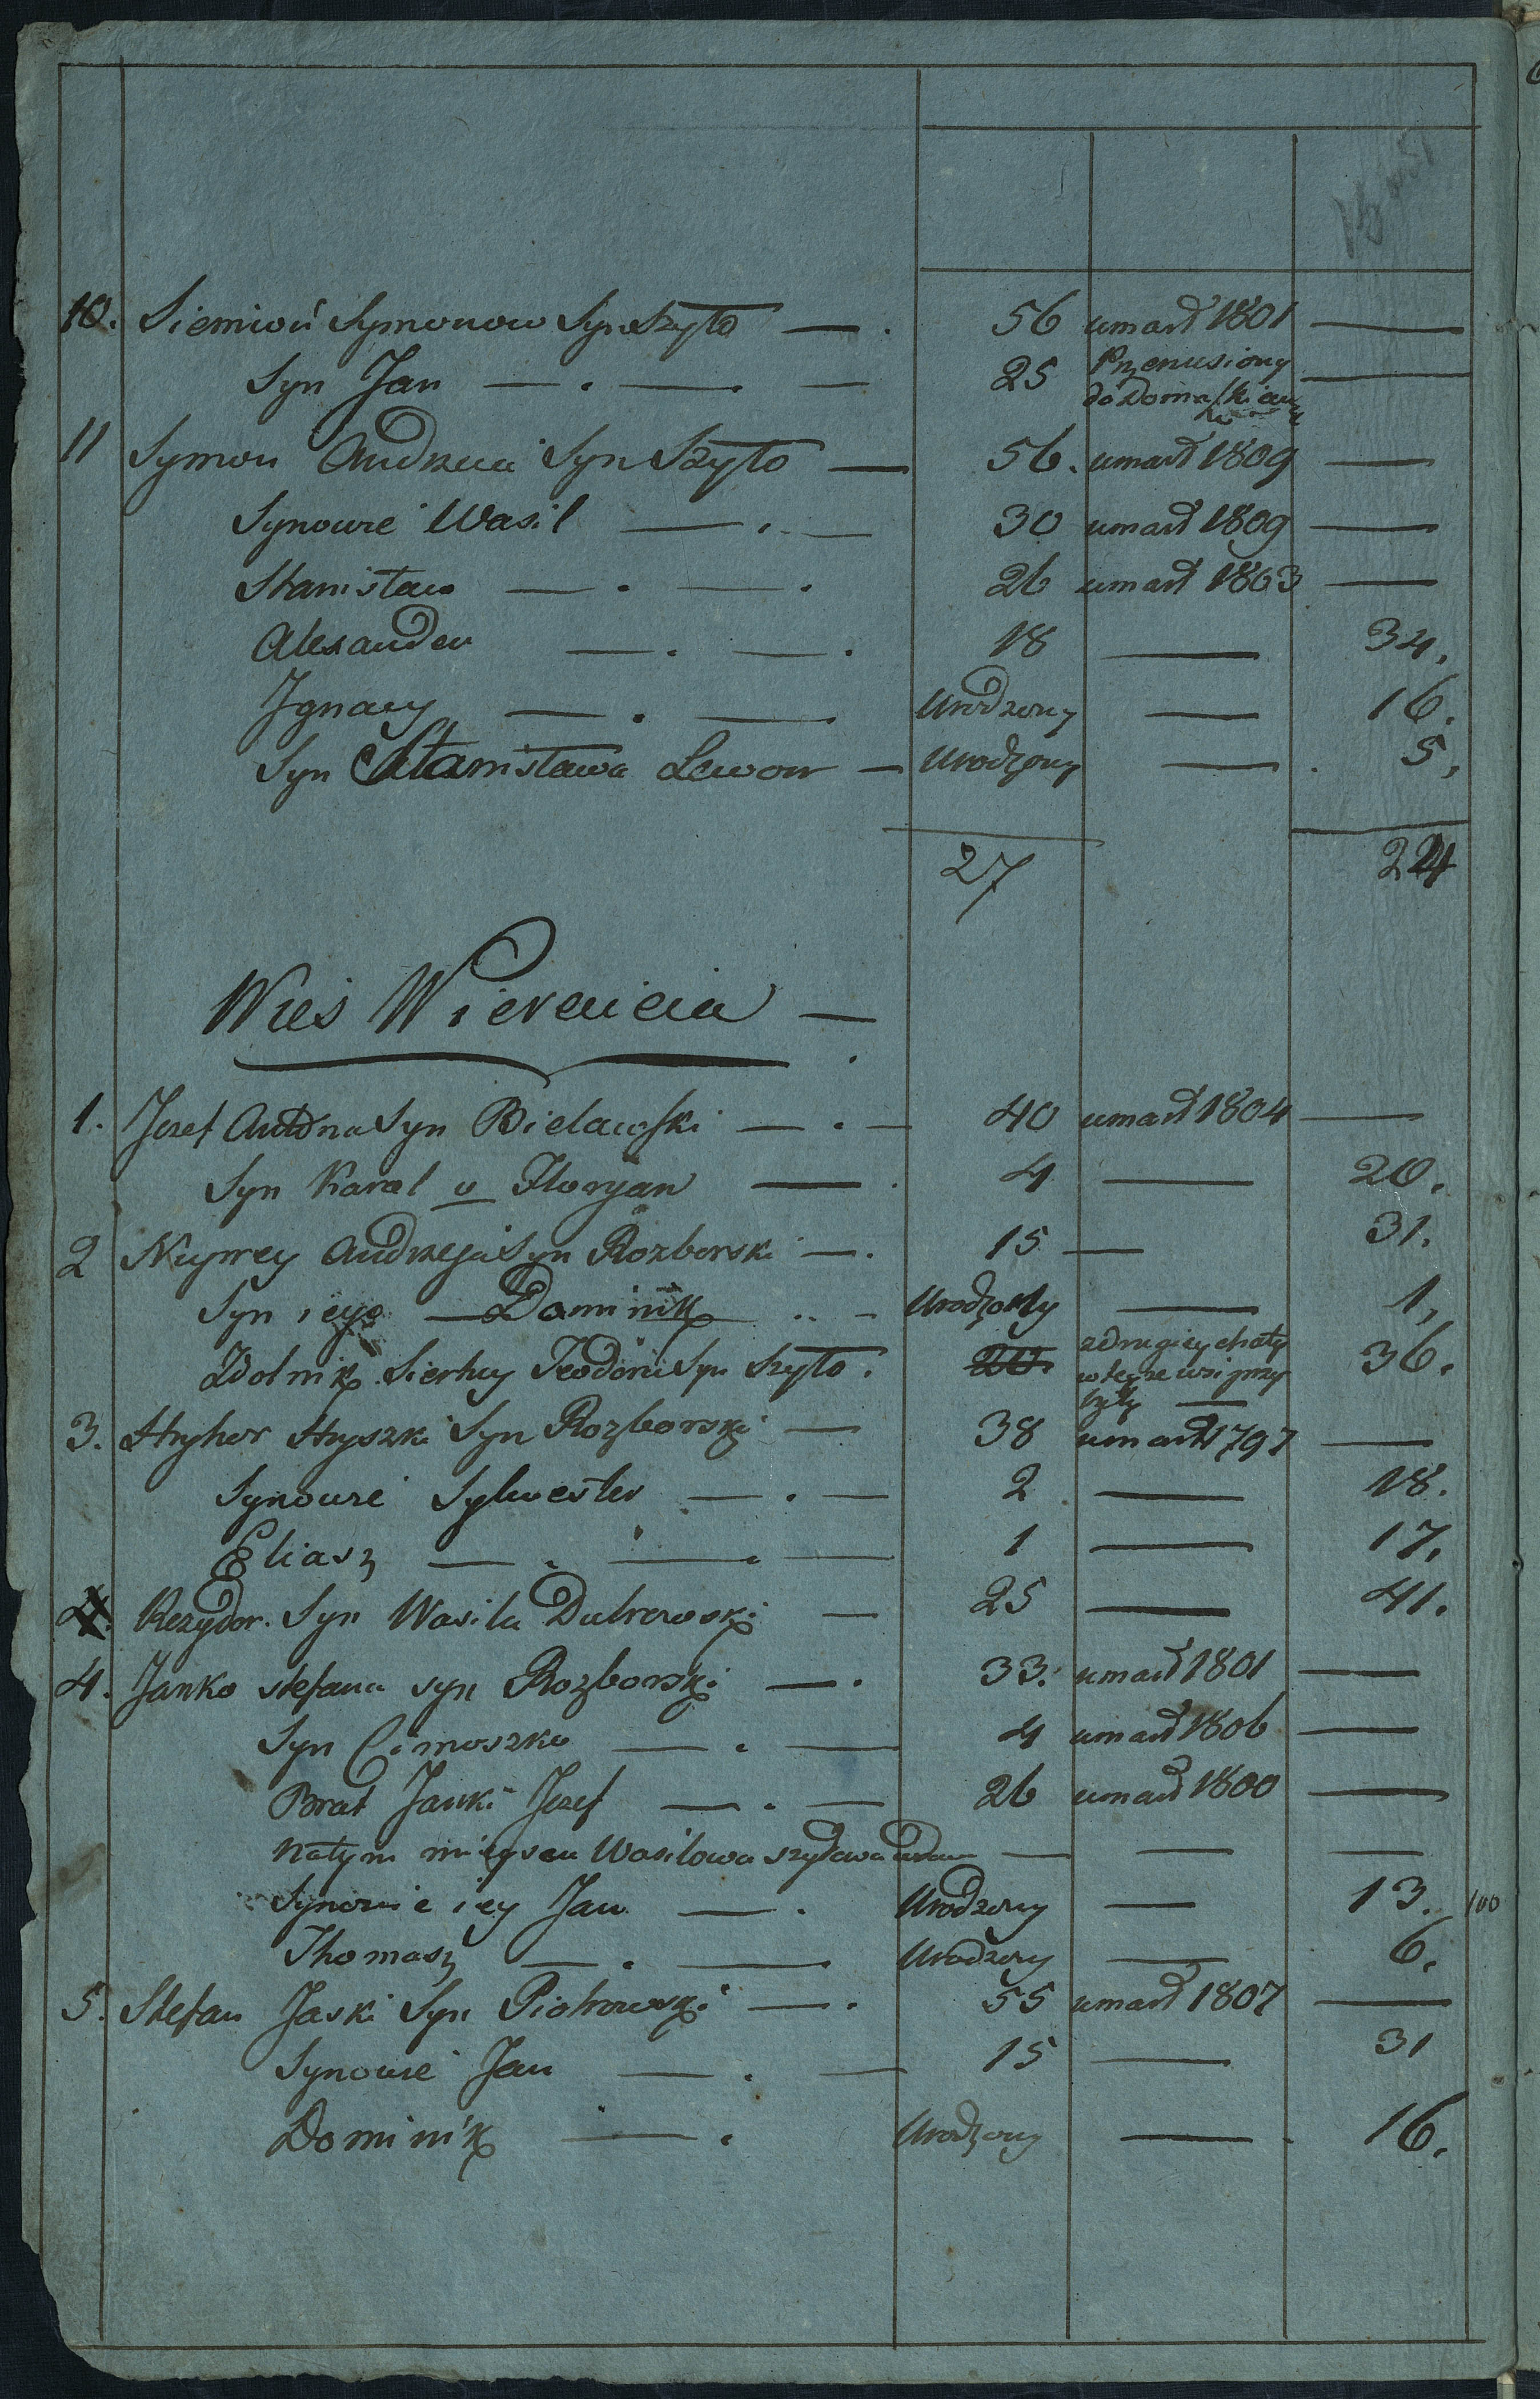 10. Siemion Symonow Syn Szyło — . 56 umarł 1801 —
Syn Jan — . — . — 25 Przenusiony —
do Doma
11 Symon Andzeia Syn Szyło — 56. umarł 1809 —
Synowie Wasil — . — 30 umarł 1809 —
Stanisław — . — . 26 umarł 1803 —
Alexander — . — . 18 — 34.
Jgnacy — . — Urodzony — 16.
Syn Stanisława Lewon — Urodzony — . 5,
27 24
Wieś Wiercicia —
1. Jozef Antona Syn Bielawski — . — 40 umarł 1804 —
Syn Karol v Floryan — . 4 — 20.
2 Andrzeja Syn Rozborski — . 15 — 31.
Syn iego — Dominik .. — Urodzony — 1,
Zdolnik Sierhey Teodora Syn Szyło. 20. zdrugiey chaty 36.
w teyze wsi przy
były —
3. Hryhor Hryszki Syn Rozborski — 38 umarł 1797 —
Synowie Sylwester — . — 2 — 18.
Eliasz — . — . — 1 — 17,
4. Rezydor. Syn Wasila Dubrowski — 25 — 41.
4. Janko stefana syn Rozborski — . 33. umarł 1801 —
Syn Cimoszka — . — 4 umarł 1806 —
Brat Janki Jozef — . — 26 umarł 1800 —
Natym mieyscu Wasilowa szyława wdowa — — —
Synowie iey Jan — . Urodzony — 13. 100
Thomasz — . — Urodzony — 6.
5. Stefan Jaski Syn Piotrowski — . 55 umarł 1807 —
Synowie Jan — . — 15 — 31
Dominik — . Urodzony — . 16.